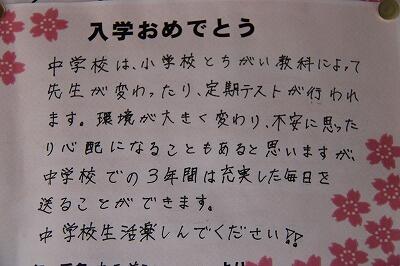 入学おめでとう
中学校は、小学校とちがい教科によって
先生が変わったり、定期テストが行われ
ます。環境が大きく変わり、不安に思った
り心配になることもあると思いますが、
中学校での3年間は充実した毎日を
送ることができます。
中学校生活楽しんでください!!
より